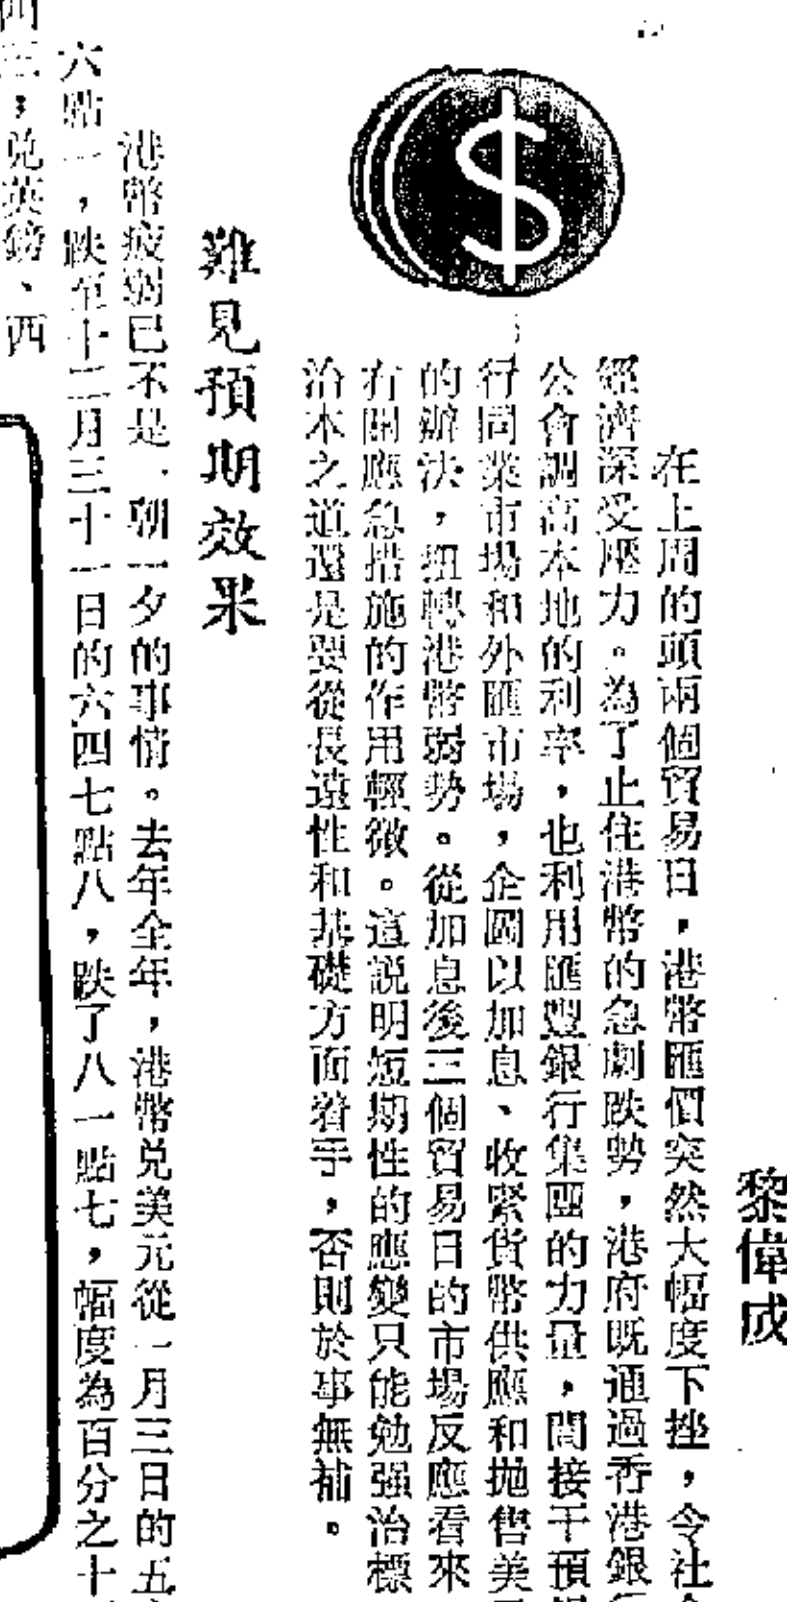 黎偉成
在上周的頭兩個貿易日，港幣匯價突然大幅度下挫，令社
經濟深受壓力。為了止住港幣的急劇跌勢，港府既通過香港銀行
公會調高本地的利率，也利用匯豐銀行集團的力量，間接干預
行同業市場和外匯市場，企圖以加息、收緊貨幣供應和拋售美
的辦法，扭轉港幣弱勢。從加息後三個貿易日的市場反應看來
有關應急措施的作用輕微。這説明短期性的應變只能勉强治標
治本之道還是要從長遠性和基礎方面着手，否則於事無補。
難見預期效果
港幣疲弱已不是一朝一夕的事情。去年全年，港幣兑美元從一月三日的五
六點一，跌至十二月三十一日的六四七點八，跌了八一點七，幅度為百分之十
，兑英鎊、西